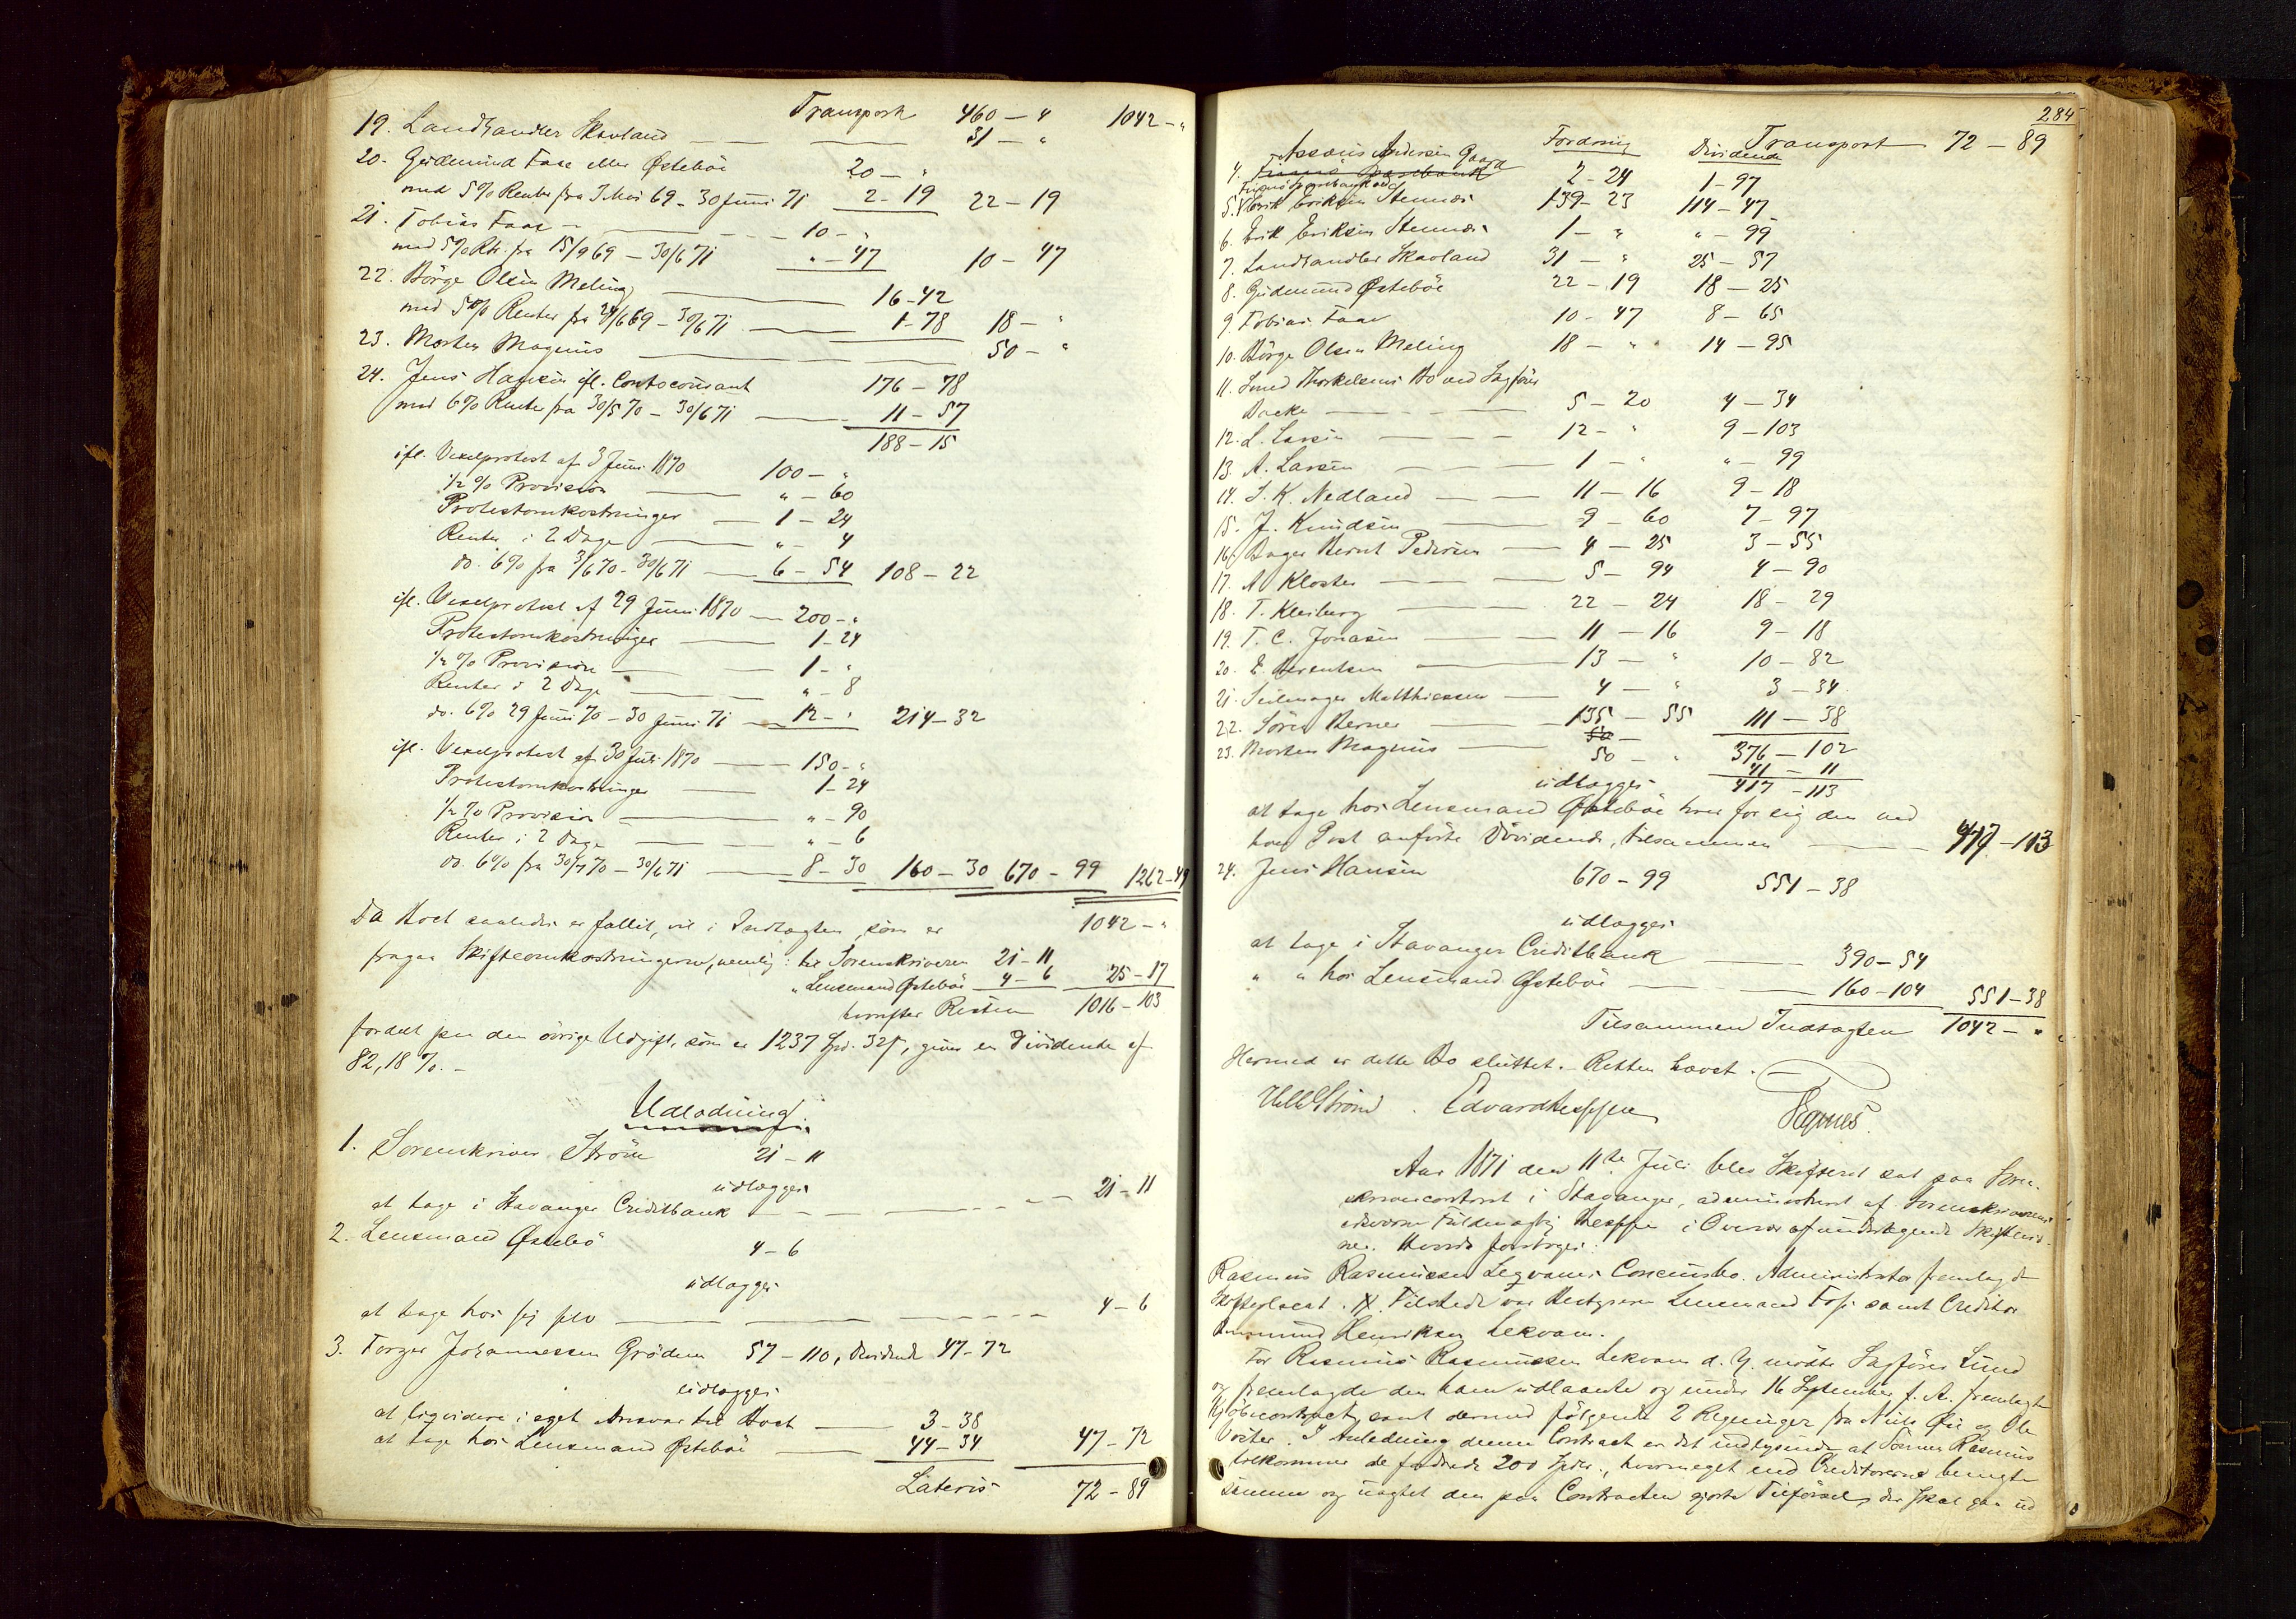 Transport 460 – „ 1042 – „
19. Landhandler Skavland — — 31 – „
20. Gudemund Faae eller Østebøe 20 – „
med 5% Renter fra 3 Mai 69 – 30 Juni 71 2 – 19 22 – 19
21. Tobias Faae — 10 – „
med 5% Rtr. fra 15/9 69 – 30/6 71 „ – 47 10 – 47
22. Børge Olsen Meling — 16 – 42
med 5% Renter fra 29/6 69 – 30/6 71 — 1 – 78 18 – „
23. Morten Magnus — 50 – „
24. Jens Hansen ifl. Contocourant 176 – 78
med 6% Renter fra 30/5 70 – 30/6 71 — 11 – 57
188 – 15
ifl. Vexelprotest af 3 Juni 1870 100 – „
1/2 % Provision — „ – 60
Protestomkostninger — 1 – 24
Renter i 2 Dage — „ – 4
do. 6% fra 3/6 70 – 30/6 71 — 6 – 54 108 – 22
ifl. Vexelprotest af 29 Juni 1870 — 200 – „
Protestomkostninger — 1 – 24
1/2 % Provision — 1 – „
Renter i 2 Dage — „ – 8
do. 6% 29 Juni 70 – 30 Juni 71 — 12 – „ 214 – 32
ifl. Vexelprotest af 30 Juli 1870 — 150 – „
Protestomkostninger — 1 – 24
1/2 % Provision — „ – 90
Renter i 2 Dage — „ – 6
do. 6% fra 30/7 70 – 30/6 71 — 8 – 30 160 – 30 670 – 99 1262 – 49
Da Boet saaledes er fallit, vil i Indtægten, som er 1042 – „
fragaa Skifteomkostningerne, nemlig: til Sorenskriveren 21 – 11
„ Lensmand Østebøe 4 – 6 25 – 17
hvorefter Resten 1016 – 103
fordelt paa den øvrige Udgift, som er 1237 Spd. 32 ß, giver en Dividende af
82,18 %. –
Udlodning.
1. Sorenskriver Strøm 21 – 11
udlægges
at tage i Stavanger Creditbank — 21 – 11
2. Lensmand Østebø 4 – 6
udlægges
at tage hos sig selv — 4 – 6
3. Torger Johannessen Grødem 57 – 110, Dividende 47 – 72
udlægges
at liqvidere i eget Ansvar til Boet — 3 – 38
at tage hos Lensmand Østebøe — 44 – 34 47 – 72
Lateris 72 – 89
284
Fordring Dividende Transport 72 – 89
4. Assons Andersen Gaard 2 – 24 1 – 97
5. Erik Eriksen Stennes 139 – 23 114 – 47
6. Erik Eriksen Stennes 1 – „ „ – 99
7. Landhandler Skavland 31 – „ 25 – 57
8. Gudemund Østebøe 22 – 19 18 – 25
9. Tobias Faae 10 – 47 8 – 65
10. Børge Olsen Meling 18 – „ 14 – 95
11. Smed Thorkelsens Bo ved Sagfører
Backe — 5 – 20 4 – 34
12. L. Larsen — 12 – „ 9 – 103
13. A. Larsen — 1 – „ „ – 99
14. S. K. Nedland — 11 – 16 9 – 18
15. J. Knudsen — 9 – 60 7 – 97
16. Bager Bernt Pedersen — 4 – 25 3 – 55
17. A. Kloster — 5 – 94 4 – 90
18. T. Kleiberg — 22 – 24 18 – 29
19. T. C. Jonasen — 11 – 16 9 – 18
20. E. Berentsen — 13 – „ 10 – 82
21. Seilmager Matthiessen — 4 – „ 3 – 34
22. Søren Berner — 135 – 55 111 – 38
23. Morten Magnus — 50 – „ 376 – 102
41 – 11
udlægges 417 – 113
at tage hos Lensmand Østebøe hver for sig den ved
hver Post anførte Dividende, tilsammen — 417 – 113
24. Jens Hansen 670 – 99 551 – 38
udlægges
at tage i Stavanger Creditbank — 390 – 54
„ „ hos Lensmand Østebøe — 160 – 104 551 – 38
Tilsammen Indtægten 1042 – „
Hermed er dette Bo sluttet. – Retten hævet.
Strøm. Edvard Reppe
Aar 1871 den 11te Juli blev Skifteret sat paa Soren-
skrivercontoret i Stavanger, administreret af Sorenskriverens
edsvorne Fuldmægtig i Overvær af undertegnede Skiftevid-
ner. Hvorda foretoges:
Rasmus Rasmussen Leqvams Concursbo. Administrator fremlagde
. Tilstede var Bestyreren Lensmand samt Creditor
Henriksen Lekvam.
For Rasmus Rasmussen Lekvam d. Y. mødte Sagfører Lund
og fremlagde den ham udlaante og under 16 September f. A. fremlagte
Kjøbecontract samt dermed følgende 2 Regninger fra Nils og Ole
. I Anledning denne Contract er det indlysende at Sønnen Rasmus
tilkommer de fordrede 200 Spdlr., hvormeget end Creditorerne benegte
samme og uagtet den paa Contracten gjorte Tilførsel, der skal gaa ud